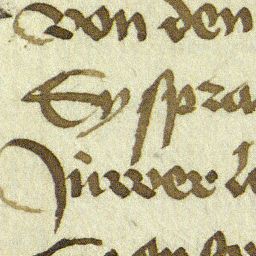 von den
Sy spra
Juwer l